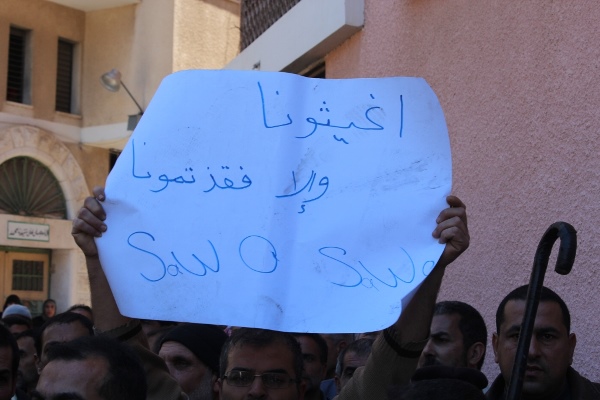 اغيثونا
وإلا فقذتمونا
SaW O SaWa